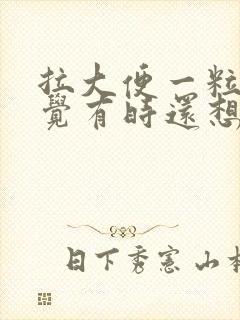 拉大便一粒
覺有時還想
日下秀憲 山本